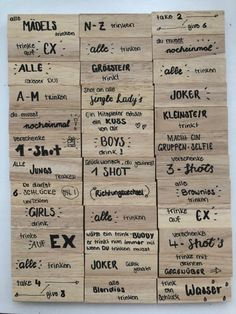 alle
MÄDELS
trinken
N-Z trinken
take 2
give 6
trinke
auf EX
alle trinken
du musst
nocheinmal
ALLE
(ausser DU)
GRÖSSTER
trinkt
alle trinken
A-M trinken
Shot an alle
Single Lady's
JOKER
du musst
nocheinmal
Ein Mitspieler erhält
ein KUSS
von dir
KLEINSTER
trinkt
verschenke
1-Shot
BOYS
drink!
MACHT EIN
GRUPPEN-SELFIE
Alle
JUNGS
trinken
Glückwunsch, du gewinnst
1 SHOT
verschenke
3-Shots
Du darfst
6 SCHLÜCKE
verteilen
Richtungswechsel
alle
Brownies
trinken
GIRLS
drink
alle trinken
trinke
auf EX
trinke
auf EX
wähle ein trink-BUDDY
er trinkt nun immer mit
wenn DU trinken musst
verschenke
4-Shot's
alle trinken
JOKER
Glück gehabt
trinke mit
deinem
GEGENÜBER
take 4
give 8
alle
Blondies
trinken
trink
ein
Schluck
Wasser